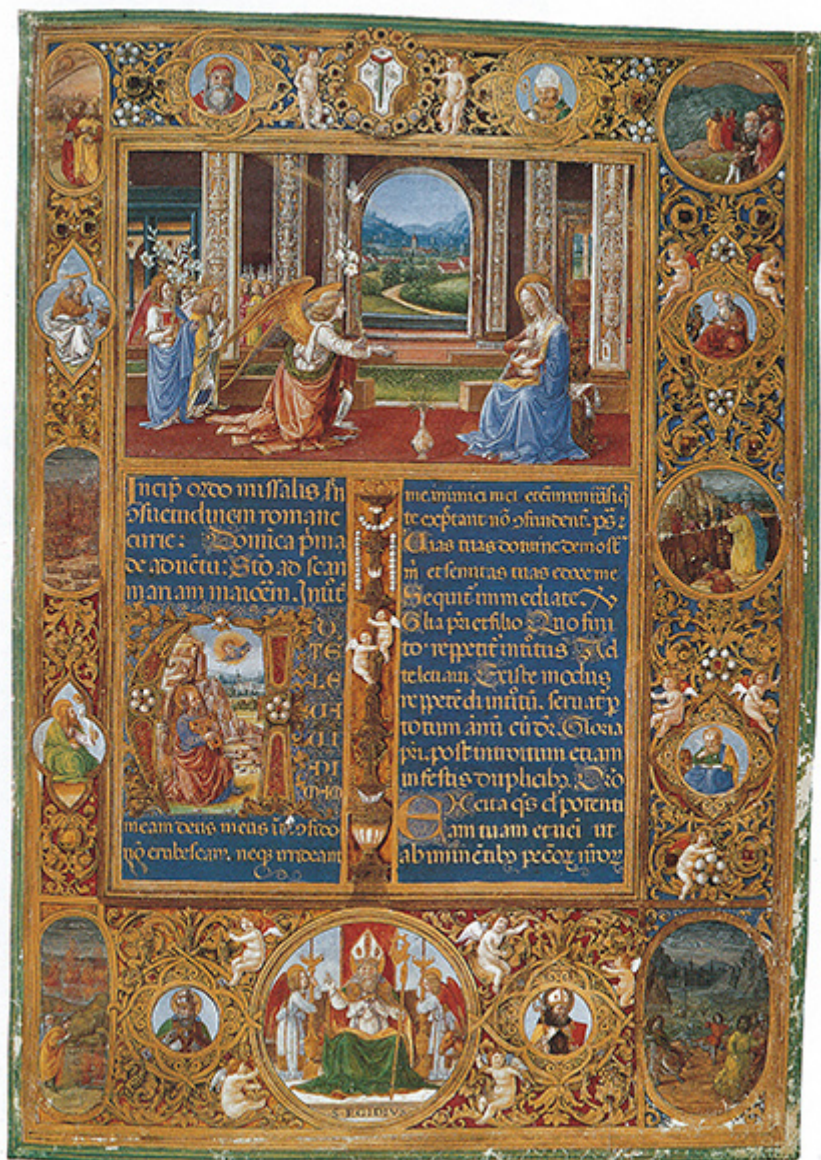 Incip̄ ordo missalis sn̄
ꝯsuetudinem romane
curie: Domica p̄ma
de aduētu: Stō ad scan
mariam maiorē. Introit̄
A
TE
LE
meam deus meus ꝯfido
nō erubescam. neqꝫ irrideant
me inimici mei etenim
te exp̄tant nō ꝯfundent. ps̄:
Uias tuas domine demōst̄
m̄ et semitas tuas edoce me
Sequit̄ immediate. V̄
Glīa p̄ri et filio Quo fini
to reppetit̄ introitus Ad
te leuaui Et iste modus
reppetēdi introitū. seruat̄ p̄
totum ānū cū dr̄. Gloria
p̄ri. post introitum etiam
in festis duplicibꝫ. Orō
Excita q̄s dn̄e potenti
am tuam et ueni ut
ab iminētibꝫ pccōꝝ nr̄oꝝ